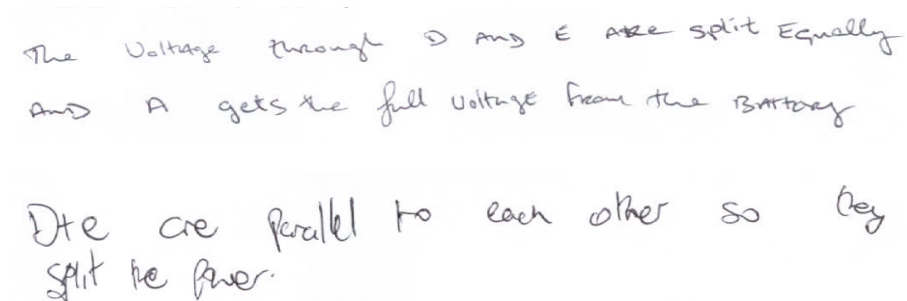 The Voltage through D AND E ARE split Equally
AND A gets the full voltage from the Battary
D+e are parallel to each other so they
split the power.